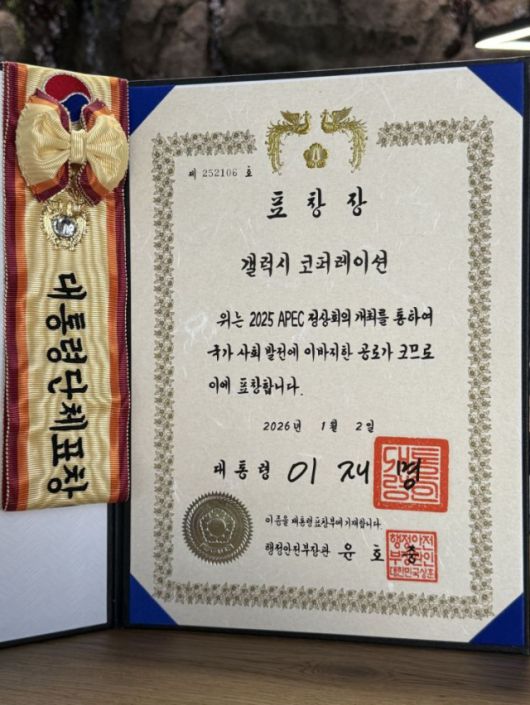 대통령단체표창
제 252106 호
표 창 장
갤럭시 코퍼레이션
위는 2025 APEC 정상회의 개최를 통하여
국가 사회 발전에 이바지한 공로가 크므로
이에 표창합니다.
2026년 1월 2일
대통령 이재명
대통령
이 증을 대통령표창부에 기재합니다.
행정안전부장관 윤호중
행정안전
부장관인
대한민국상훈